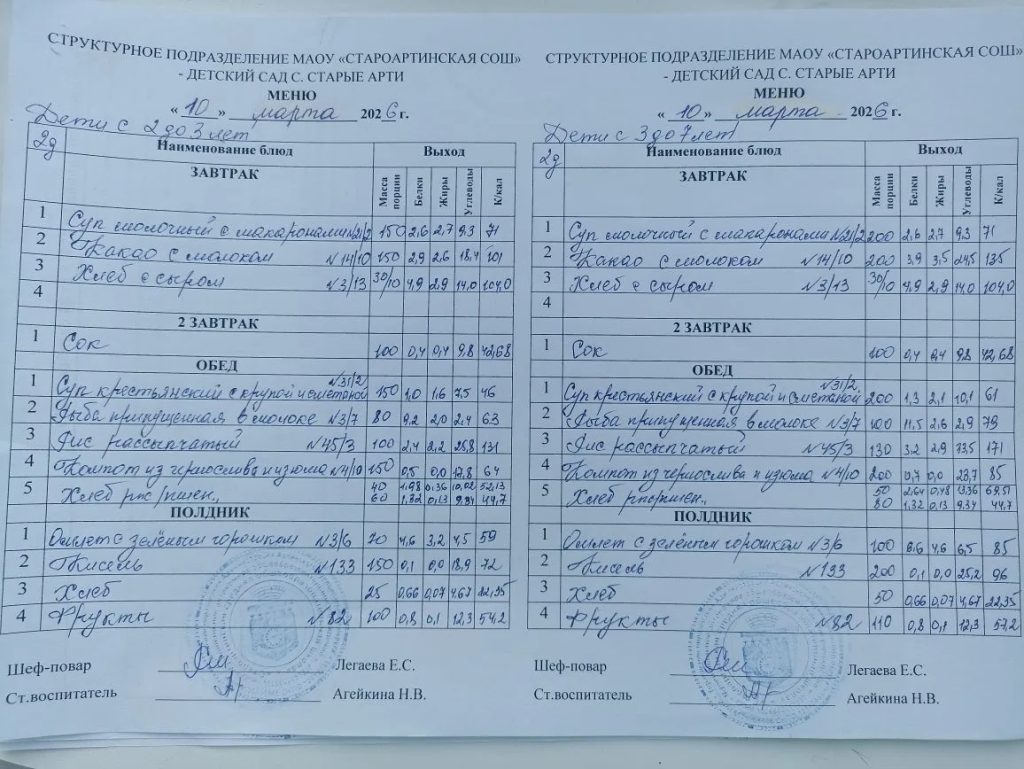 СТРУКТУРНОЕ ПОДРАЗДЕЛЕНИЕ МАОУ «СТАРОАРТИНСКАЯ СОШ»
- ДЕТСКИЙ САД С. СТАРЫЕ АРТИ
МЕНЮ
« 10 » марта 2026 г.
Дети с 2 до 3 лет
2д Наименование блюд Выход
ЗАВТРАК Масса порции Белки Жиры Углеводы К/кал
1 Суп молочный с макаронами №21/2 150 2,6 2,7 9,3 71
2 Какао с молоком №14/10 150 2,9 2,6 18,4 101
3 Хлеб с сыром №3/13 30/10 4,9 2,9 14,0 104,0
4
2 ЗАВТРАК
1 Сок 100 0,4 0,4 9,8 42,68
ОБЕД
1 Суп крестьянский с крупой и сметаной №31/2 150 1,0 1,6 7,5 46
2 Рыба припущенная в молоке №3/7 80 9,2 2,0 2,4 63
3 Рис рассыпчатый №45/3 100 2,4 2,2 25,8 131
4 Компот из чернослива и изюма №4/10 150 0,5 0,0 17,8 64
5 Хлеб рж/пшен,, 40 1,98 0,36 10,02 52,13
60 1,32 0,13 9,34 44,7
ПОЛДНИК
1 Омлет с зелёным горошком №3/6 70 4,6 3,2 4,5 59
2 Кисель №133 150 0,1 0,0 18,9 72
3 Хлеб 25 0,66 0,07 4,67 22,35
4 Фрукты №82 100 0,8 0,1 12,3 54,2
Шеф-повар Легаева Е.С.
Ст.воспитатель Агейкина Н.В.
СТРУКТУРНОЕ ПОДРАЗДЕЛЕНИЕ МАОУ «СТАРОАРТИНСКАЯ СОШ»
- ДЕТСКИЙ САД С. СТАРЫЕ АРТИ
МЕНЮ
« 10 » марта 2026 г.
Дети с 3 до 7 лет
2д Наименование блюд Выход
ЗАВТРАК Масса порции Белки Жиры Углеводы К/кал
1 Суп молочный с макаронами №21/2 200 2,6 2,7 9,3 71
2 Какао с молоком №14/10 200 3,9 3,5 24,5 135
3 Хлеб с сыром №3/13 30/10 4,9 2,9 14,0 104,0
4
2 ЗАВТРАК
1 Сок 100 0,4 0,4 9,8 42,68
ОБЕД
1 Суп крестьянский с крупой и сметаной №31/2 200 1,3 2,1 10,1 61
2 Рыба припущенная в молоке №3/7 100 11,5 2,6 2,9 79
3 Рис рассыпчатый №45/3 130 3,2 2,9 33,5 171
4 Компот из чернослива и изюма №4/10 200 0,7 0,0 23,7 85
5 Хлеб рж/пшен,, 50 2,64 0,48 13,36 69,51
80 1,32 0,13 9,34 44,7
ПОЛДНИК
1 Омлет с зелёным горошком №3/6 100 6,6 4,6 6,5 85
2 Кисель №133 200 0,1 0,0 25,2 96
3 Хлеб 50 0,66 0,07 4,67 22,35
4 Фрукты №82 110 0,8 0,1 12,3 57,2
Шеф-повар Легаева Е.С.
Ст.воспитатель Агейкина Н.В.